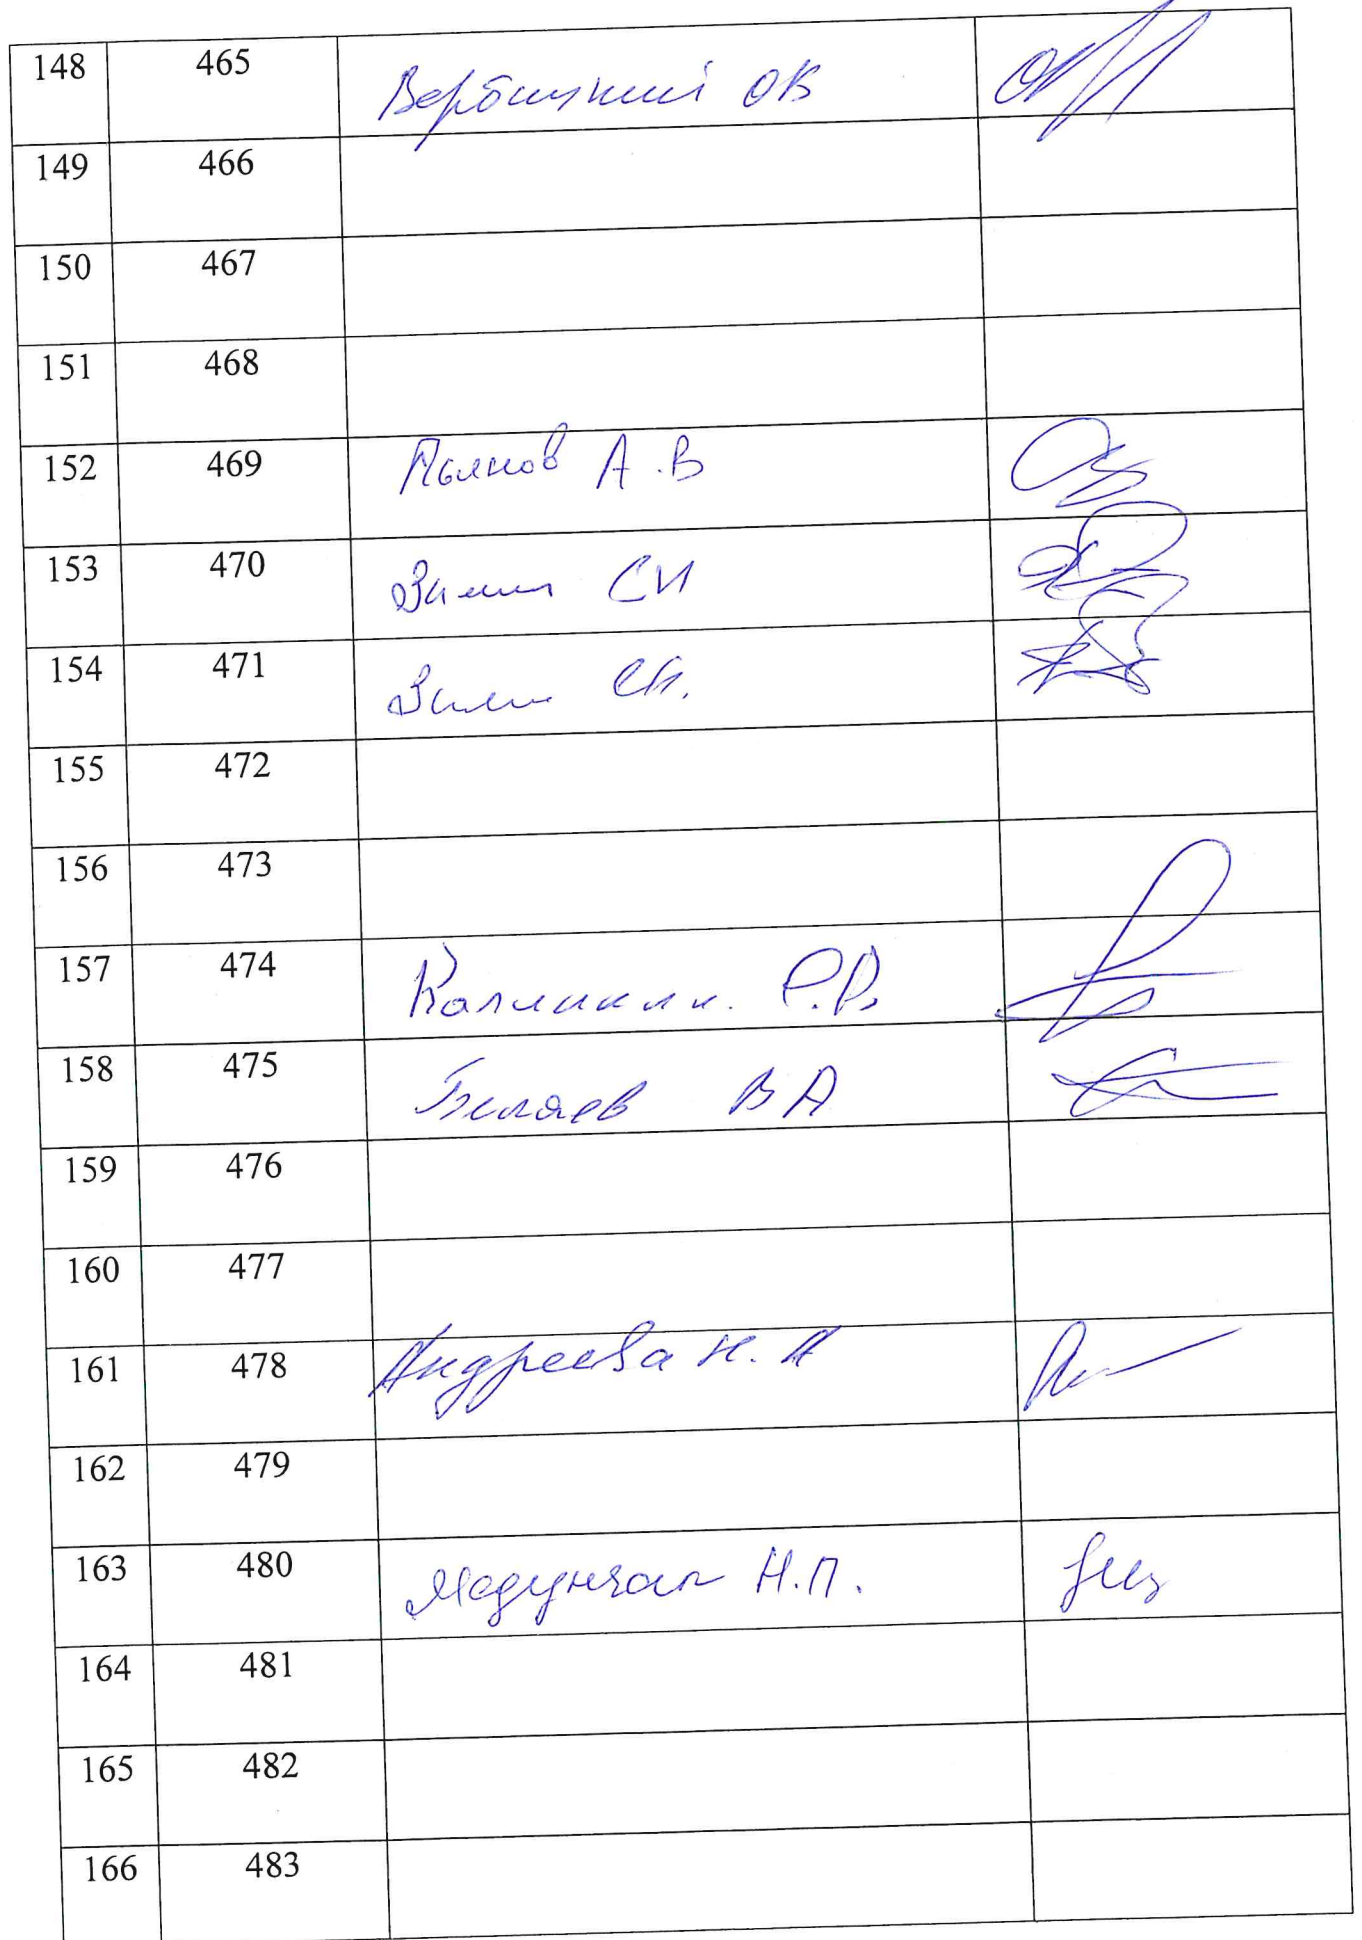 148 465 Вербицкий ОВ
149 466
150 467
151 468
152 469 Пьянов А.В
153 470 СИ
154 471 СИ.
155 472
156 473
157 474 Калинкин. Р.Р.
158 475 Беляев ВА
159 476
160 477
161 478 Андреева Н.А
162 479
163 480 Н.П.
164 481
165 482
166 483